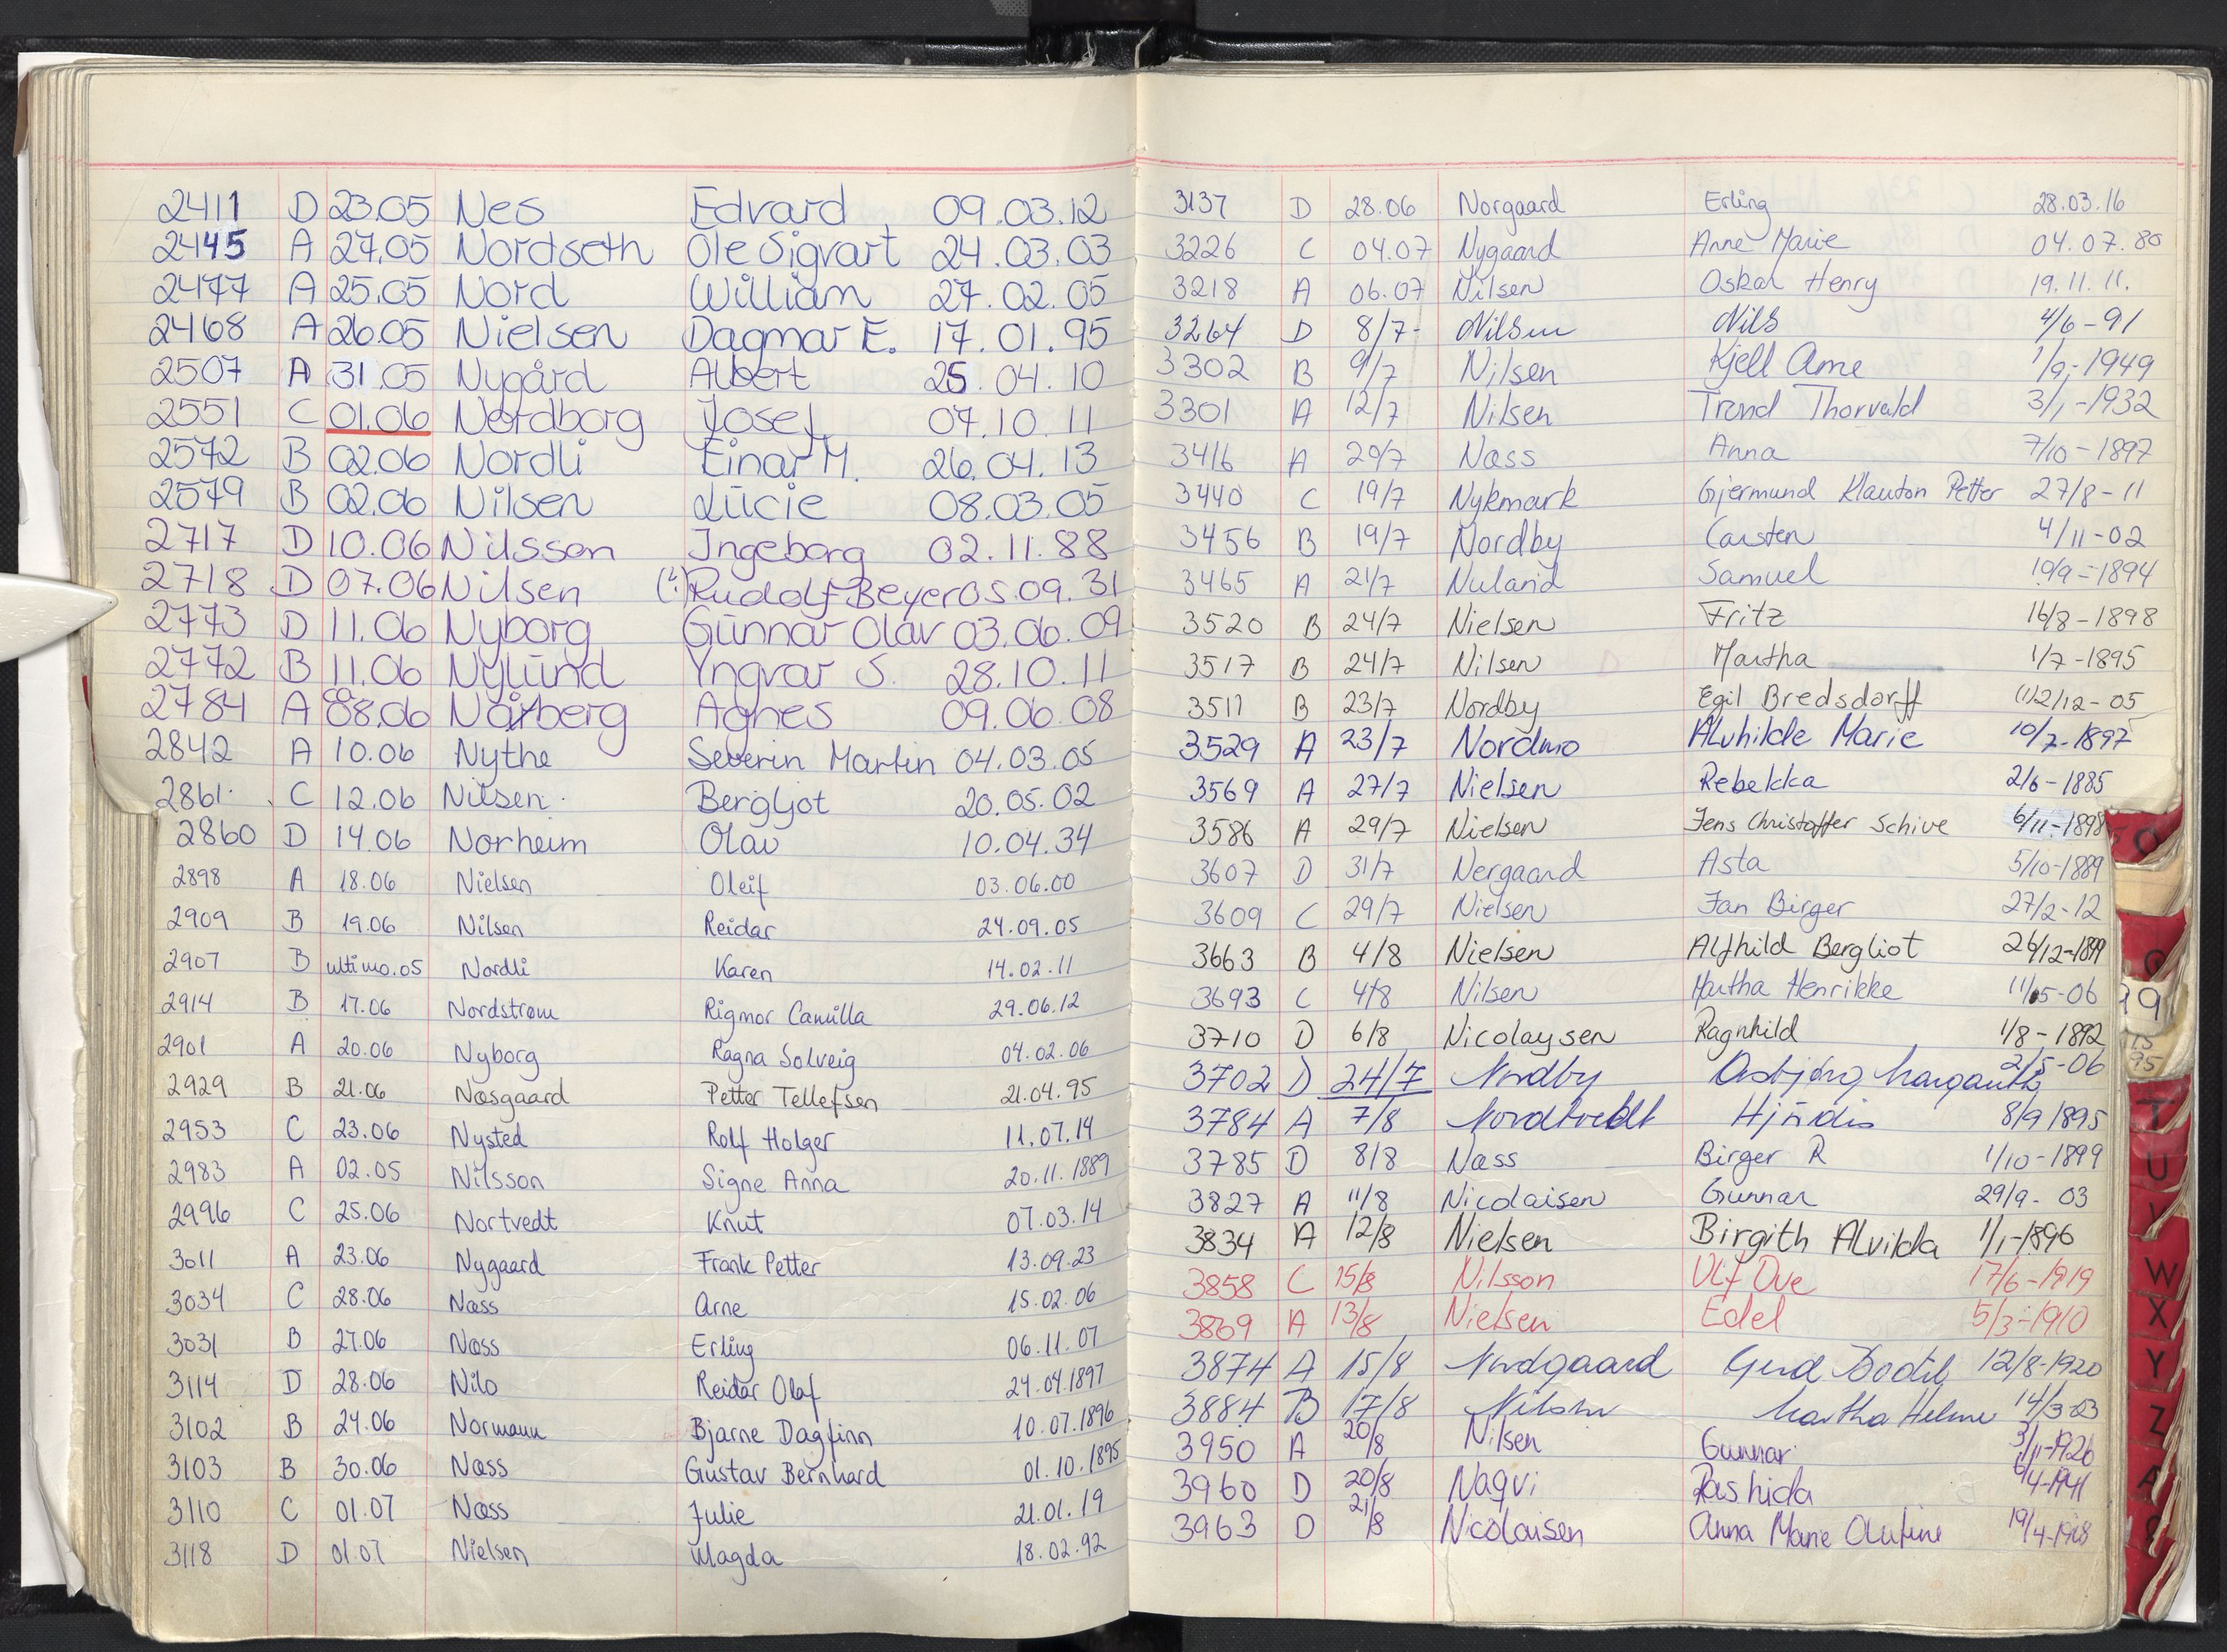 2411 D 23.05 Nes Edvard 09.03.12
2445 A 27.05 Nordseth Ole Sigvart 24.03.03
2477 A 25.05 Nord William 27.02.05
2468 A 26.05 Nielsen Dagmar E. 17.01.95
2507 A 31.05 Nygård Albert 25.04.10
2551 C 01.06 Nordborg Josef 07.10.11
2572 B 02.06 Nordli Einar M. 26.04.13
2579 B 02.06 Nilsen Lucie 08.03.05
2717 D 10.06 Nilsson Ingeborg 02.11.88
2718 D 07.06 Nilsen Rudolf Beyer 05.09.31
2773 D 11.06 Nyborg Gunnar Olav 03.06.09
2772 B 11.06 Nylund Yngvar S. 28.10.11
2784 A 08.06 Nårberg Agnes 09.06.08
2842 A 10.06 Nythe Severin Martin 04.03.05
2861 C 12.06 Nilsen Bergljot 20.05.02
2860 D 14.06 Norheim Olav 10.04.34
2898 A 18.06 Nielsen Oleif 03.06.00
2909 B 19.06 Nilsen Reidar 24.09.05
2907 B ultimo.05 Nordli Karen 14.02.11
2914 B 17.06 Nordstrøm Rigmor Camilla 29.06.12
2901 A 20.06 Nyborg Ragna Solveig 04.02.06
2929 B 21.06 Næsgaard Petter Tellefsen 21.04.95
2953 C 23.06 Nysted Rolf Holger 11.07.14
2983 A 02.05 Nilsson Signe Anna 20.11.1889
2996 C 25.06 Nortvedt Knut 07.03.14
3011 A 23.06 Nygaard Frank Petter 13.09.23
3034 C 28.06 Næss Arne 15.02.06
3031 B 27.06 Næss Erling 06.11.07
3114 D 28.06 Nilo Reidar Olaf 24.04.1897
3102 B 24.06 Normann Bjarne Dagfinn 10.07.1896
3103 B 30.06 Næss Gustav Bernhard 01.10.1895
3110 C 01.07 Næss Julie 21.01.19
3118 D 01.07 Nielsen Magda 18.02.92
3137 D 28.06 Norgaard Erling 28.03.16
3226 C 04.07 Nygaard Anne Marie 04.07.80
3218 A 06.07 Nilsen Oskar Henry 19.11.11.
3264 D 8/7- Nilsen Nils 4/6-91
3302 B 9/7 Nilsen Kjell Arne 1/9-1949
3301 A 12/7 Nilsen Trond Thorvald 3/1-1932
3416 A 20/7 Næss Anna 7/10-1897
3440 C 19/7 Nykmark Gjermund Klauton Petter 27/8-11
3456 B 19/7 Nordby Carsten 4/11-02
3465 A 21/7 Nuland Samuel 10/9-1894
3520 B 24/7 Nielsen Fritz 16/8-1898
3517 B 24/7 Nilsen Martha 1/7-1895
3511 B 23/7 Nordby Egil Bredsdorff 2/12-05
3529 A 23/7 Nordmo Alvhilde Marie 10/7-1897
3569 A 27/7 Nielsen Rebekka 2/6-1885
3586 A 29/7 Nielsen Jens Christoffer Schive 6/11-1898
3607 D 31/7 Nergaard Asta 5/10-1889
3609 C 29/7 Nielsen Jan Birger 27/2-12
3663 B 4/8 Nielsen Alfhild Bergliot 26/12-1899
3693 C 4/8 Nilsen Martha Henrikke 11/5-06
3710 D 6/8 Nicolaysen Ragnhild 1/8-1892
3702 D 24/7 Nordby Asbjørg Margareth 2/5-06
3784 A 7/8 Nordtvedt Hjørdis 8/9 1895
3785 D 8/8 Næss Birger R 1/10-1899
3827 A 11/8 Nicolaisen Gunnar 29/9-03
3834 A 12/8 Nielsen Birgith Alvilda 1/1-1896
3858 C 15/8 Nilsson Ulf Ove 17/6-1919
3869 A 13/8 Nielsen Edel 5/3-1910
3874 A 15/8 Nordgaard Gerd Bodil 12/8-1920
3884 B 17/8 Nilsen Martha Helene 14/3-03
3950 A 20/8 Nilsen Gunnar 3/11-1926
3960 D 20/8 Naqvi Rashida 6/4-1941
3963 D 21/8 Nicolaisen Anna Marie Olufine 19/4-1908
O
Q
T
U
V
W
X
Y
Z